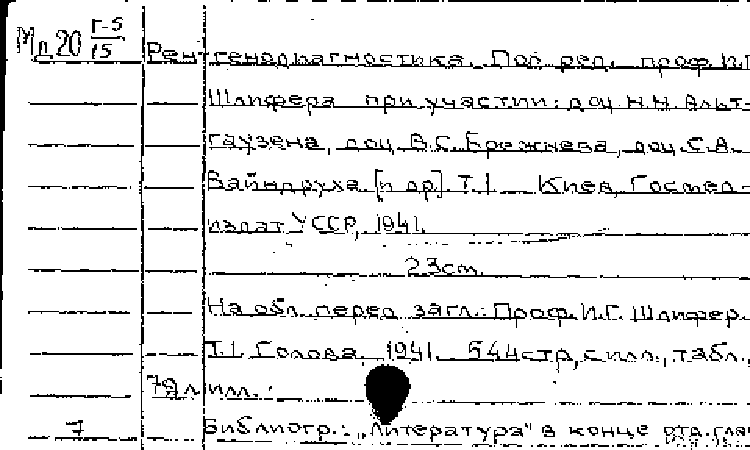 Мд20 Г-5/15 Рентгенодиагностика. Под ред. проф. И.Г.
Шлифера при участии: доц. Н.Н. Альт-
гаузена, доц. В.С. Брежнева, доц. С.А.
Вайндруха [и др]. Т.1. Киев, Госмед-
издат УССР, 1941.
23cm.
На обл. перед загл.: Проф. И.Г. Шлифер.
Т.1. Голова. 1941. 544стр, с илл., табл.,
79л илл.:
7 Библиогр.: „Литература" в конце отд. глав